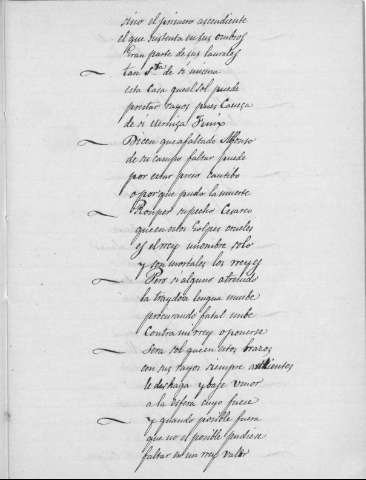 sino el primero ascendiente
el que sustenta en sus ombros
gran parte de sus laureles
tan S.ra de si misma
esta Casa que el sol puede
prestar rayos pues Caveça
de si eterniça Fenix
Dicen que a faltado Alfonso
de su campo faltar puede
por estar preso cautibo
o por que pudo la muerte
Romper su pecho Cesareo
que en estos Golpes crueles
es el rrey un ombre solo
y son mortales los rreyes
Pero si alguno atrevido
la traydora lengua muebe
procurando fatal nube
Contra mi rrey oponerse
sera sol que en estos brazos
con sus rayos siempre ardientes
le desaga y baje
a la esfera cuyo fuere
y quando posible fuera
que no es posible pudiese
faltar en un rrey valor